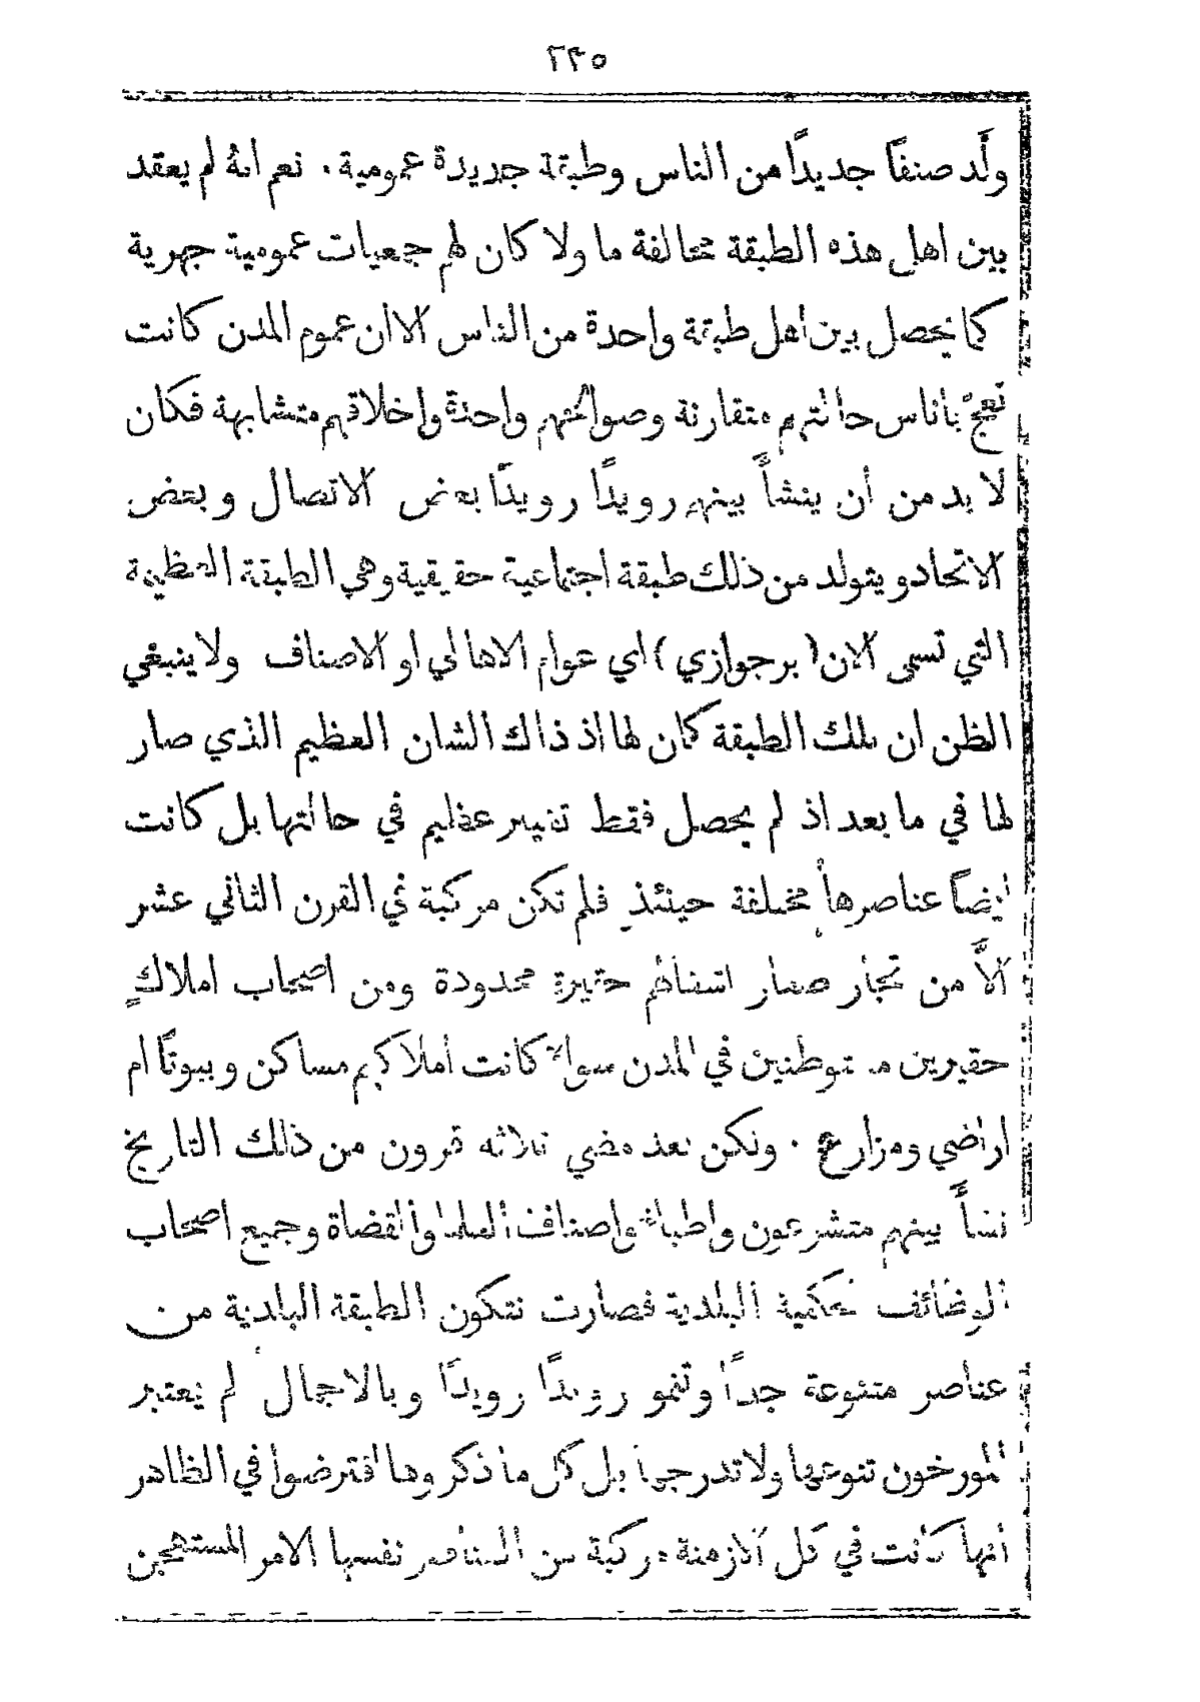 ٢٣٥
ولَّد صنفًا جديدًا من الناس وطبقة جديدة عمومية . نعم انهُ لم يعقد
بين اهل هذه الطبقة مخالفة ما ولا كان لهم جمعيات عمومية جهرية
كما يحصل بين اهل طبقة واحدة من الناس الا ان عموم المدن كانت
تعجّ باناس حالتهم متقارنة وصوالحهم واحدة واخلاقهم متشابهة فكان
لا بد من أن ينشأَ بينهم رويدًا رويدًا بعض الاتصال وبعض
الاتحاد ويتولد من ذلك طبقة اجتماعية حقيقية وهي الطبقة العظيمة
التي تسمى الان ( برجوازي ) اي عوام الاهالي او الاصناف ولا ينبغي
الظن ان تلك الطبقة كان لها اذ ذاك الشان العظيم الذي صار
لها في ما بعد اذ لم يحصل فقط تغيير عظيم في حالتها بل كانت
ايضًا عناصرها مختلفة حينئذٍ فلم تكن مركبة في القرن الثاني عشر
الاَّ من تجار صغار اشغالهم حقيرة محدودة ومن اصحاب املاكٍ
حقيرين متوطنين في المدن سواءٌ كانت أملاكهم مساكن وبيوتًا ام
اراضي ومزارع . ولكن بعد مضي ثلاثة قرون من ذلك التاريخ
نشأَ بينهم متشرعون واطباءٌ واصناف العلماء والقضاة وجميع اصحاب
الوظائف الحكمية البلدية فصارت تتكون الطبقة البلدية من
عناصر متنوعة جدًّا وتنمو رويدًا رويدًا وبالاجمال لم يعتبر
المورخون تنوعها ولا تدرجها بل كل ما ذكروها افترضوا في الظاهر
انها كانت في كل الازمنة مركبة من العناصر نفسها الامر المستهجن